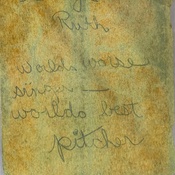 Ruth
worlds worse
singer —
worlds best
pitcher